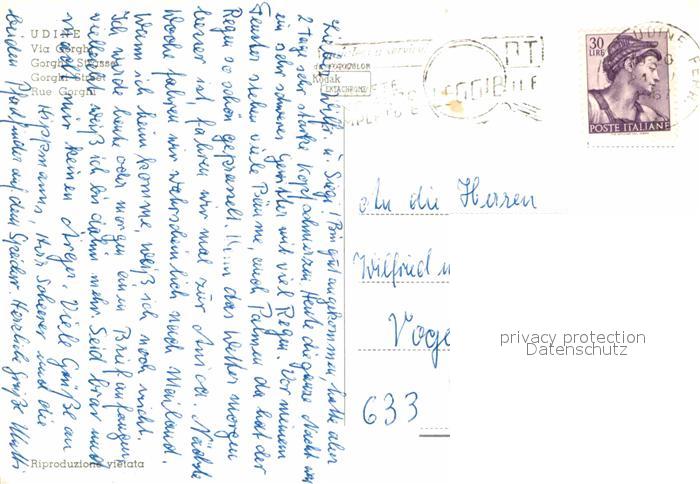 UDINE
Via Gorghi
Gorghi Strasse
Gorghi Street
Rue Gorghi
Kodak
EKTACHROME
LEGGIBILE
UDINE
30
LIRE
POSTE ITALIANE
Lieber Wilfried u. Siegi! Bin gut angekommen, hatte aber
2 Tage sehr starke Kopfschmerzen. Heute die ganze Nacht war
ein sehr schweres Gewitter mit viel Regen. Vor meinem
Fenster stehen viele Bäume, auch Palmen da hat der
Regen so schön geprasselt. Wenn das Wetter morgen
besser ist, fahren wir mal zur Anica. Nächste
Woche fahren wir wahrscheinlich nach Mailand.
Wann ich heim komme, weiß ich noch nicht.
Ich werde heute oder morgen einen Brief anfangen,
vielleicht weiß ich bis dahin mehr. Seid brav und
macht mir keinen Ärger. Viele Grüße an
Hoppmanns, Herr Scheerer und die
beiden Pfadfinder auf dem Speicher. Herzliche Grüße Mutti
An die Herren
Wilfried u
Voge
633
privacy protection
Datenschutz
Riproduzione vietata